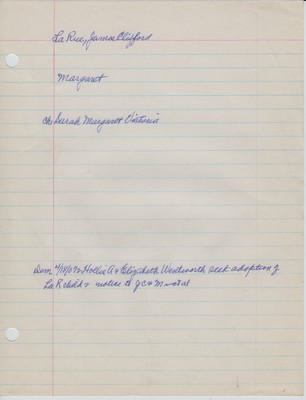 La Rue, James Clifford
Margaret
ch Sarah Margaret Victoria
Dom Hollis A & Elizabeth Wentworth seek adoption of
La R child & notice to J C & M